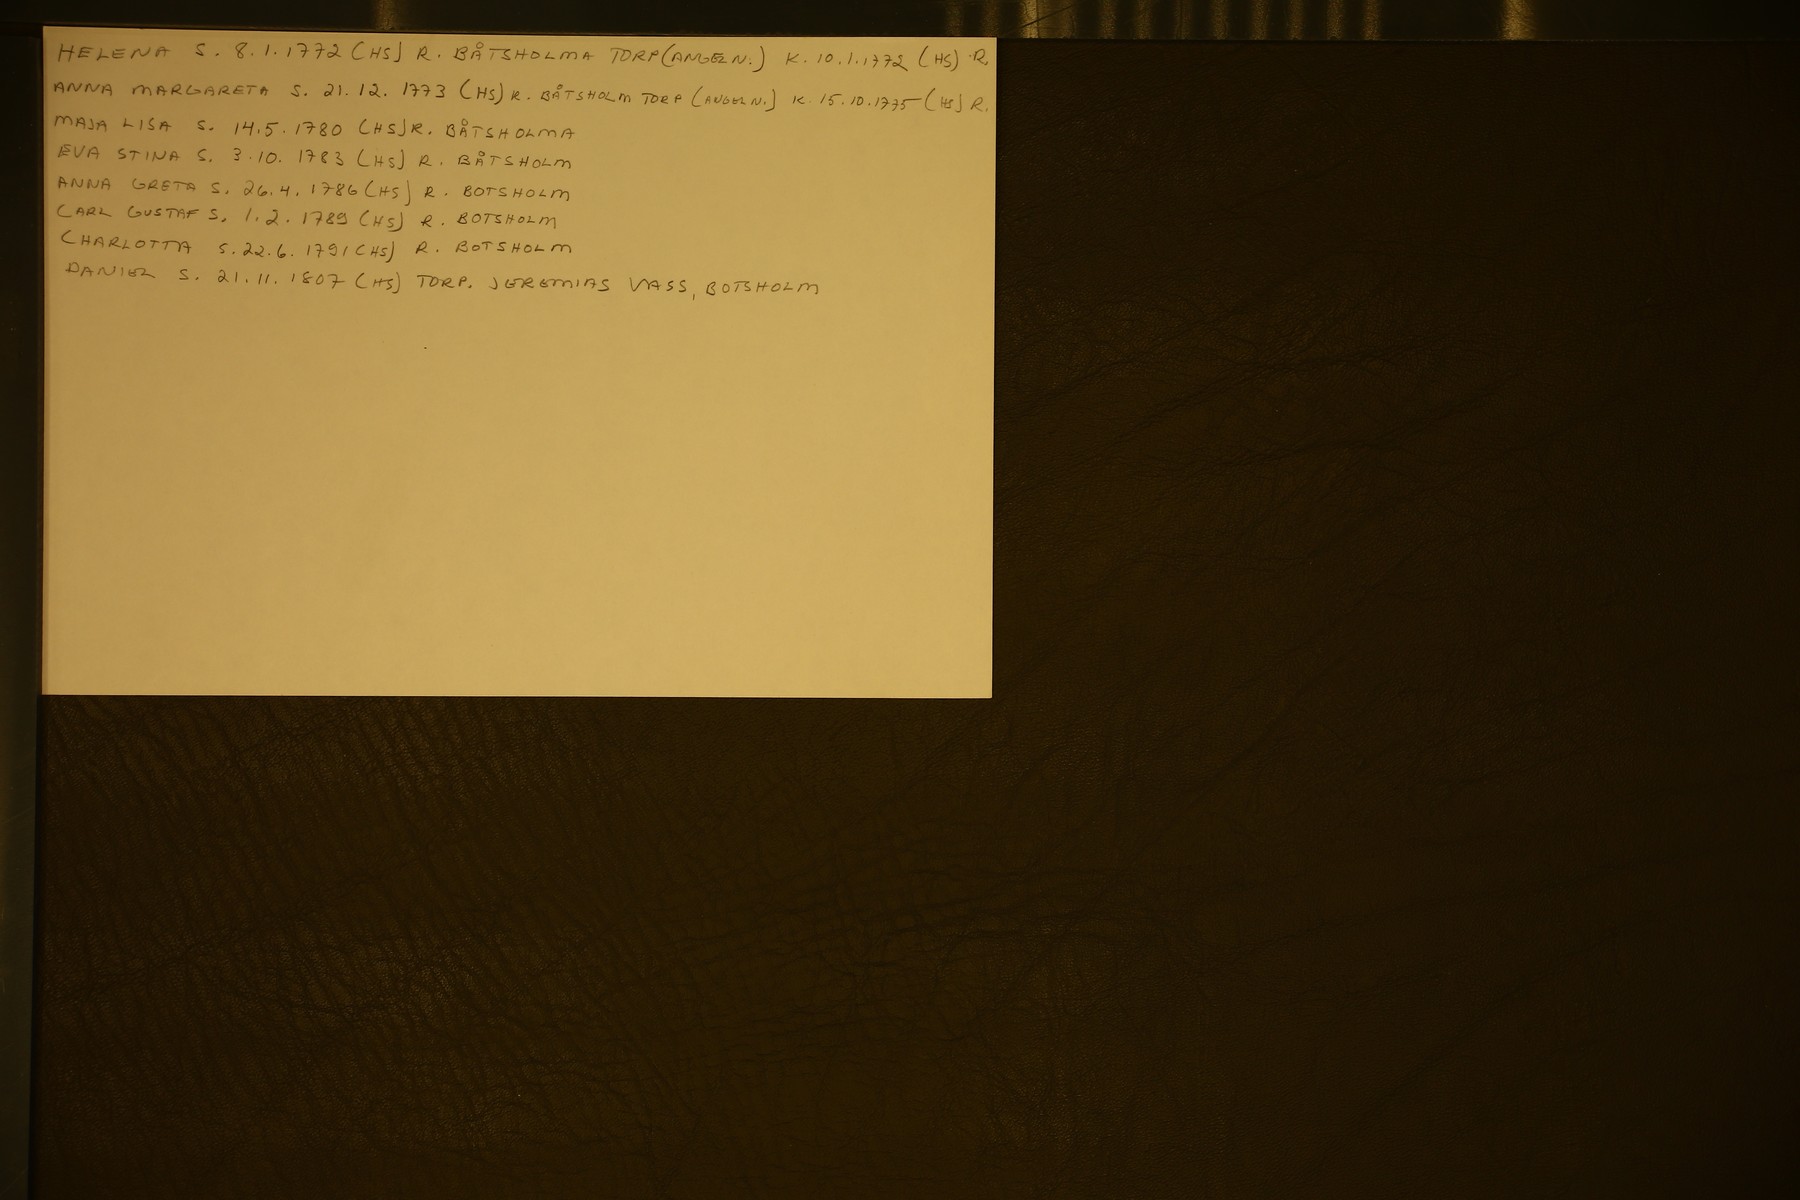 HELENA S. 8.1.1772 (HS) R. BÅTSHOLMA TORP (ANGELN.) K. 10.1.1772 (HS) R.
ANNA MARGARETA S. 21.12.1773 (HS) R. BÅTSHOLM TORP (ANGELN.) K. 15.10.1775 (HS) R.
MAJA LISA S. 14.5.1780 (HS) R. BÅTSHOLMA
EVA STINA S. 3.10.1783 (HS) R. BÅTSHOLM
ANNA GRETA S. 26.4.1786 (HS) R. BOTSHOLM
CARL GUSTAF S. 1.2.1789 (HS) R. BOTSHOLM
CHARLOTTA S. 22.6.1791 (HS) R. BOTSHOLM
DANIEL S. 21.11.1807 (HS) TORP. JEREMIAS VASS, BOTSHOLM